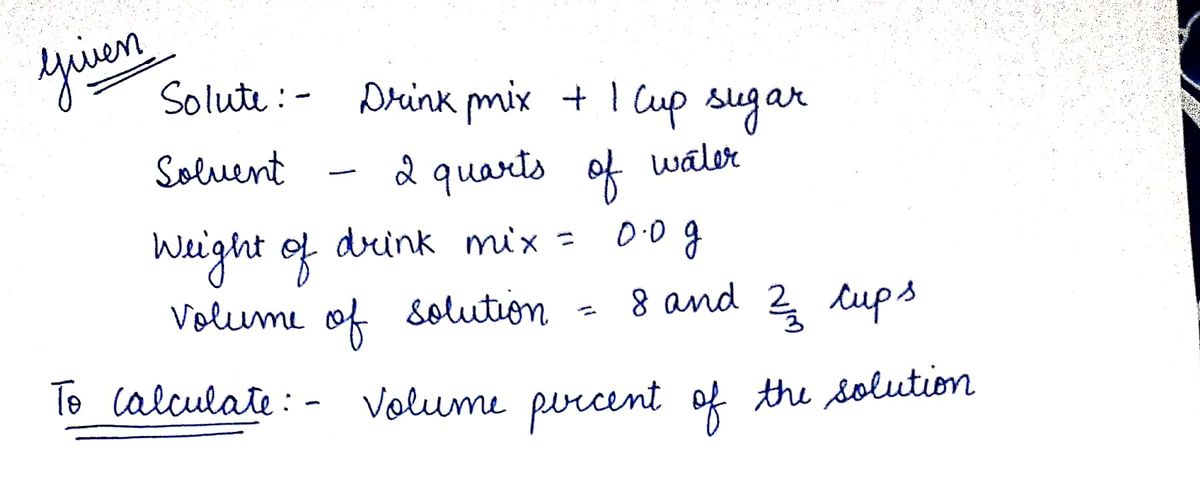 Given
Solute :- Drink mix + 1 Cup sugar
Solvent - 2 quarts of water
Weight of drink mix = 0.0 g
Volume of solution = 8 and 2/3 cups
To Calculate :- Volume percent of the solution